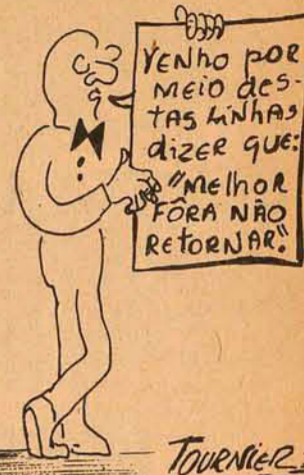 VENHO POR
MEIO DES-
TAS LINHAS
DIZER QUE:
"MELHOR
FÔRA NÃO
RETORNAR."
TOURNIER